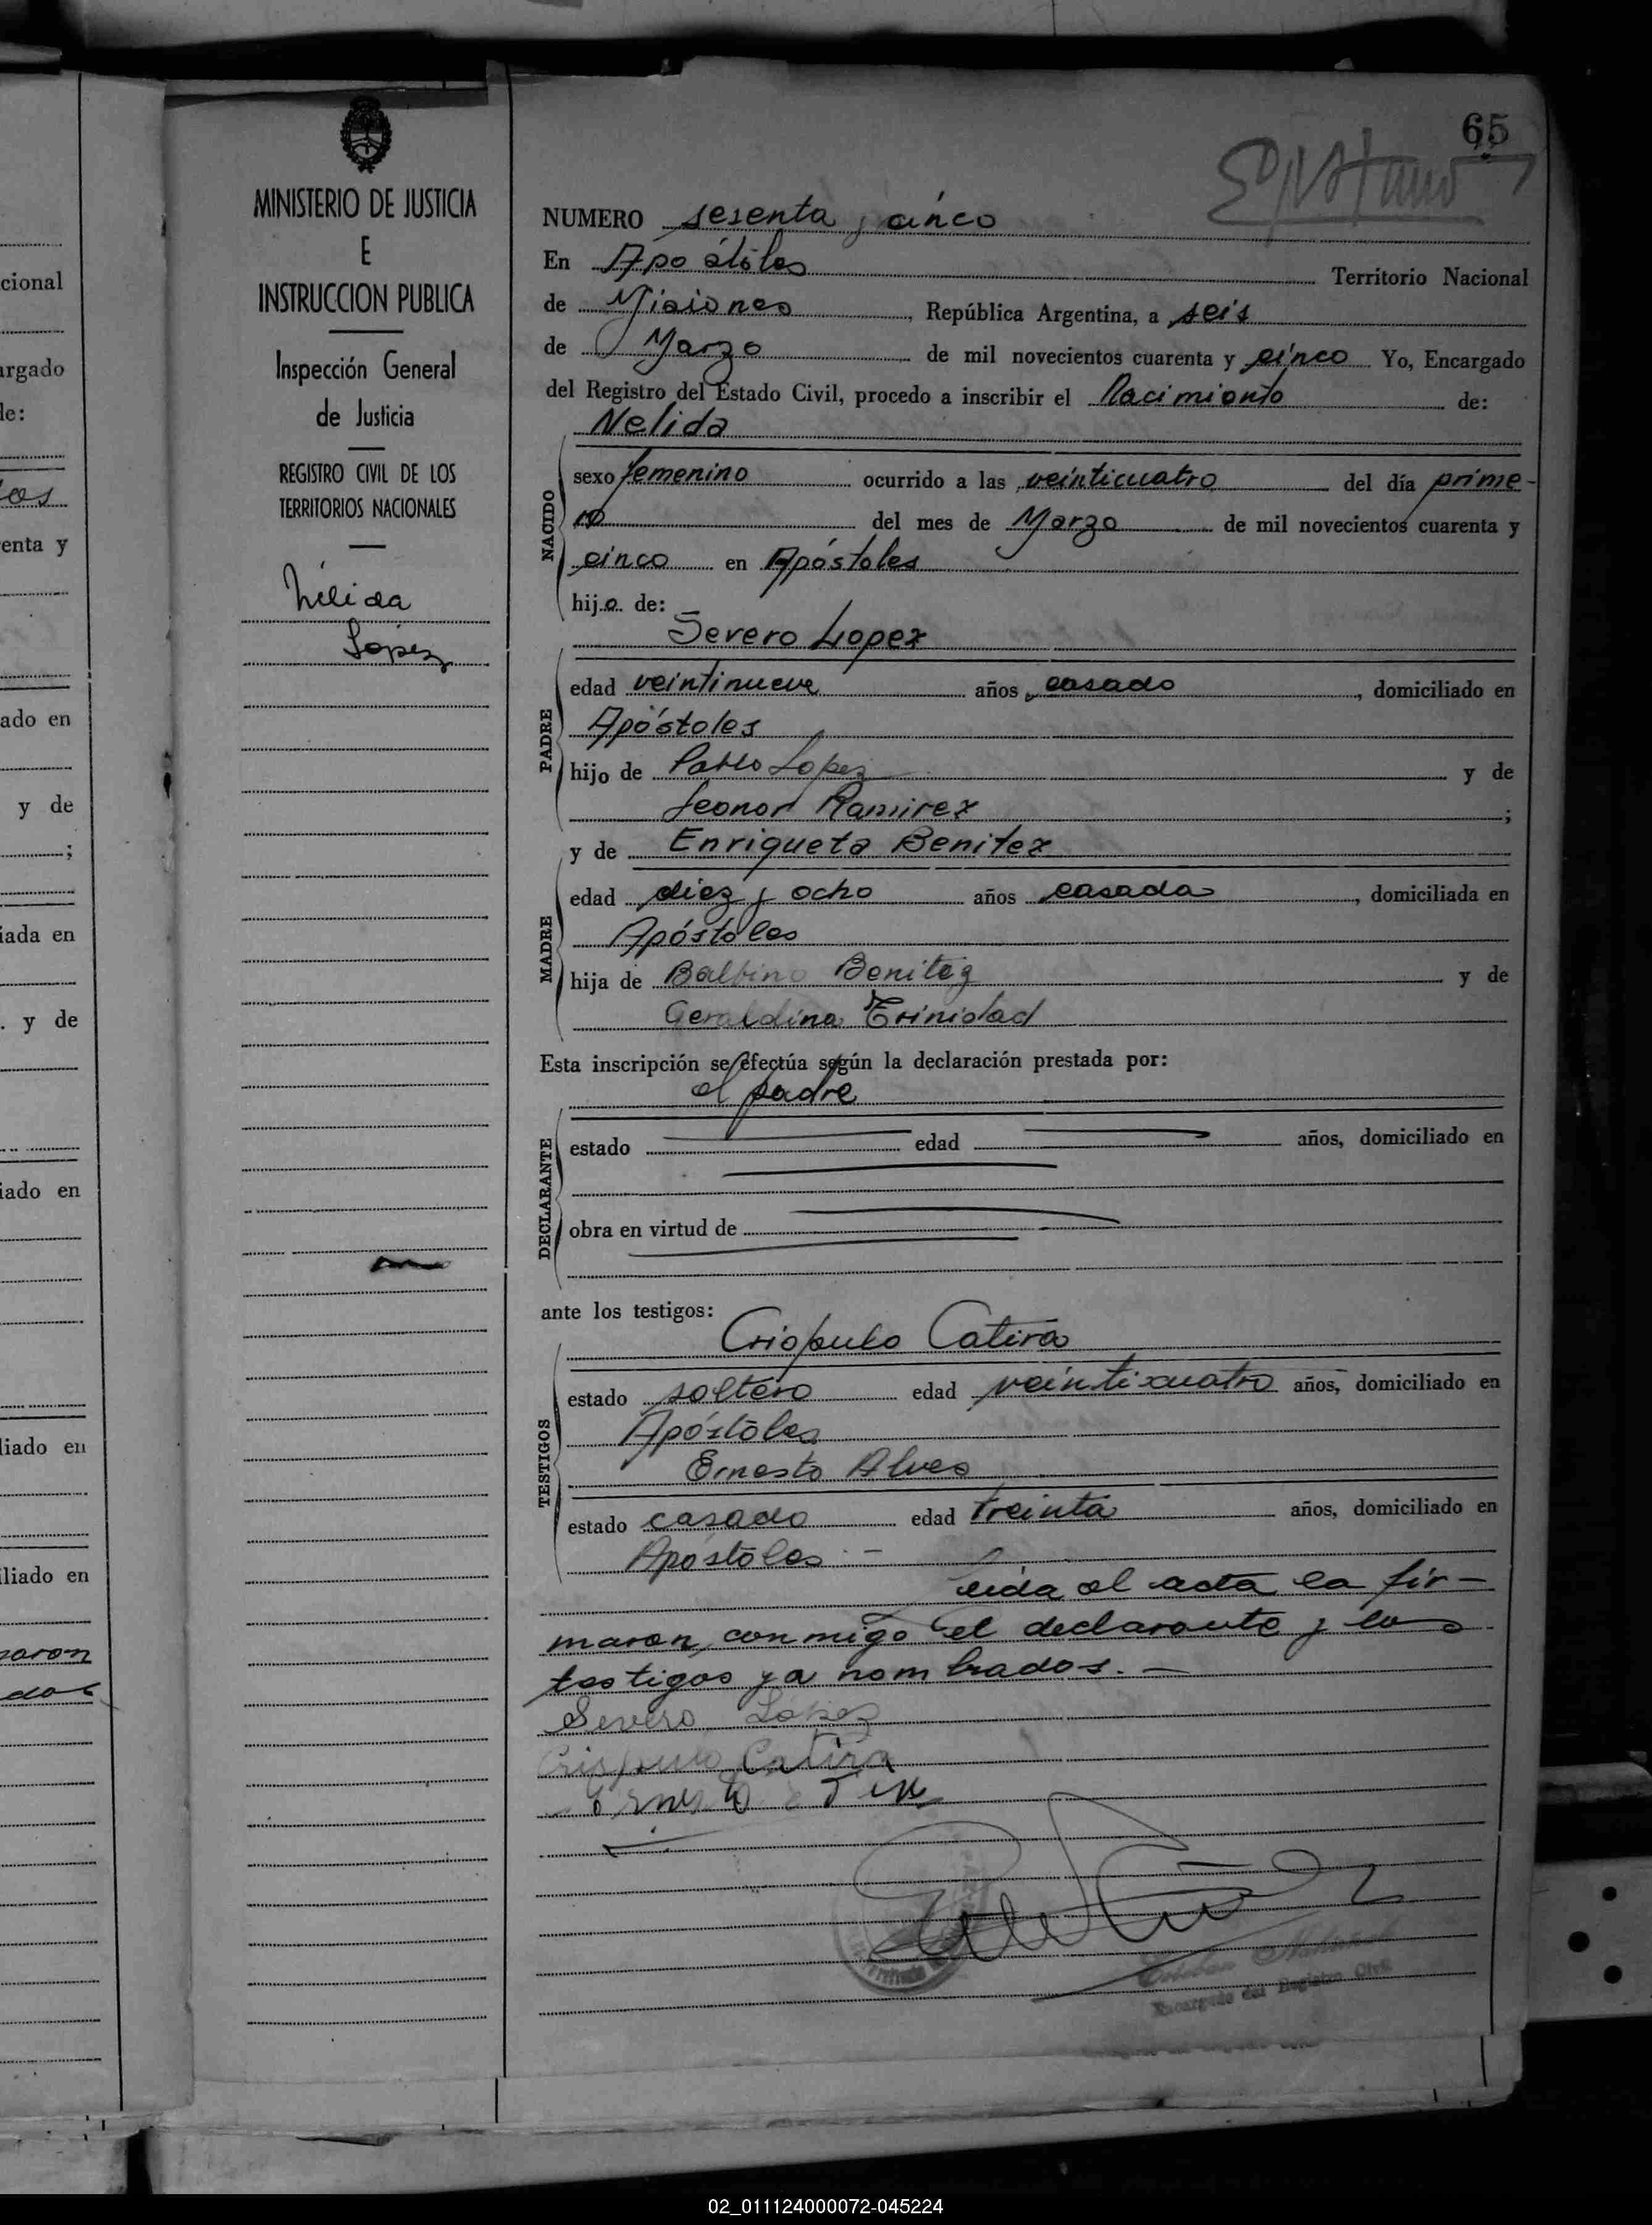 cional
argado
de:
enta y
ado en
y de
;
iada en
. y de
iado en
liado en
iliado en
MINISTERIO DE JUSTICIA
E
INSTRUCCION PUBLICA
Inspección General
de Justicia
REGISTRO CIVIL DE LOS
TERRITORIOS NACIONALES
Nélida
López
65
NUMERO sesenta y cinco
En Apóstoles Territorio Nacional
de Misiones, República Argentina, a seis
de Marzo de mil novecientos cuarenta y cinco Yo, Encargado
del Registro del Estado Civil, procedo a inscribir el Nacimiento de:
Nelida
NACIDO
sexo femenino ocurrido a las veinticuatro del día prime-
ro del mes de Marzo de mil novecientos cuarenta y
cinco en Apóstoles
hija de:
Severo Lopez
PADRE
edad veintinueve años casado, domiciliado en
Apóstoles
hijo de Pablo Lopez y de
Leonor Ramirez;
y de Enriqueta Benitez
MADRE
edad diez y ocho años casada, domiciliada en
Apóstoles
hija de Balbino Benitez y de
Geraldina Trinidad
Esta inscripción se efectúa según la declaración prestada por:
el padre
DECLARANTE
estado edad años, domiciliado en
obra en virtud de
ante los testigos:
Catira
TESTIGOS
estado soltero edad veinticuatro años, domiciliado en
Apóstoles
Ernesto Alves
estado casado edad treinta años, domiciliado en
Apóstoles.-
Leida el acta la fir-
maron, conmigo el declarante y los
testigos ya nombrados.-
Severo Lópes
Catira
Encargado del Registro Civil
02_011124000072-045224